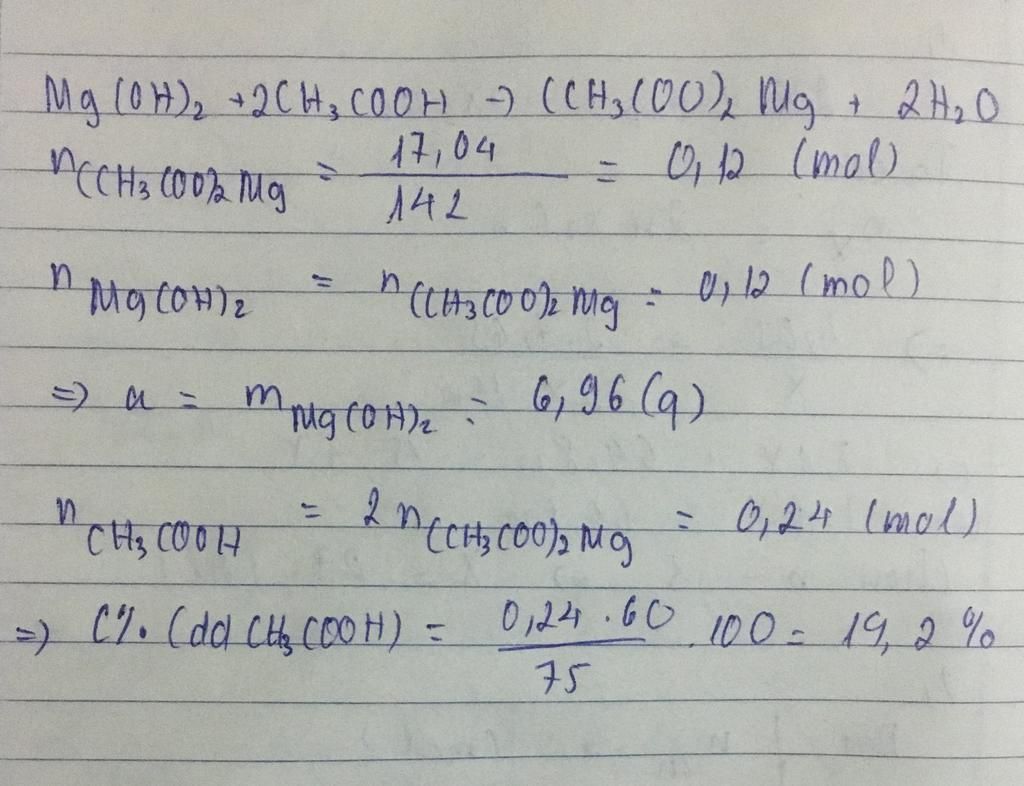 Mg(OH)₂ + 2CH₃COOH → (CH₃COO)₂Mg + 2H₂O
n(CH₃COO)₂Mg = 17,04 / 142 = 0,12 (mol)
nMg(OH)₂ = n(CH₃COO)₂Mg = 0,12 (mol)
=> a = mMg(OH)₂ = 6,96 (g)
nCH₃COOH = 2n(CH₃COO)₂Mg = 0,24 (mol)
=> C%(dd CH₃COOH) = 0,24.60 / 75 .100 = 19,2%